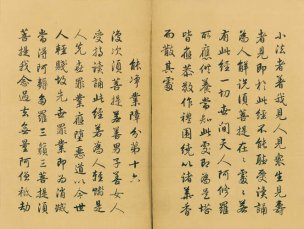 小法者著我見人見眾生見壽
者見即於此經不能聽受讀誦
為人解說須菩提在在處處若
有此經一切世間天人阿修羅
所應供養當知此處即為是塔
皆應恭敬作禮圍繞以諸華香
而散其處
能淨業障分第十六
復次須菩提若善男子善女人
受持讀誦此經若為人輕賤是
人先世罪業應墮惡道以今世
人輕賤故先世罪業即為消滅
當得阿耨多羅三藐三菩提須
菩提我念過去無量阿僧祇劫